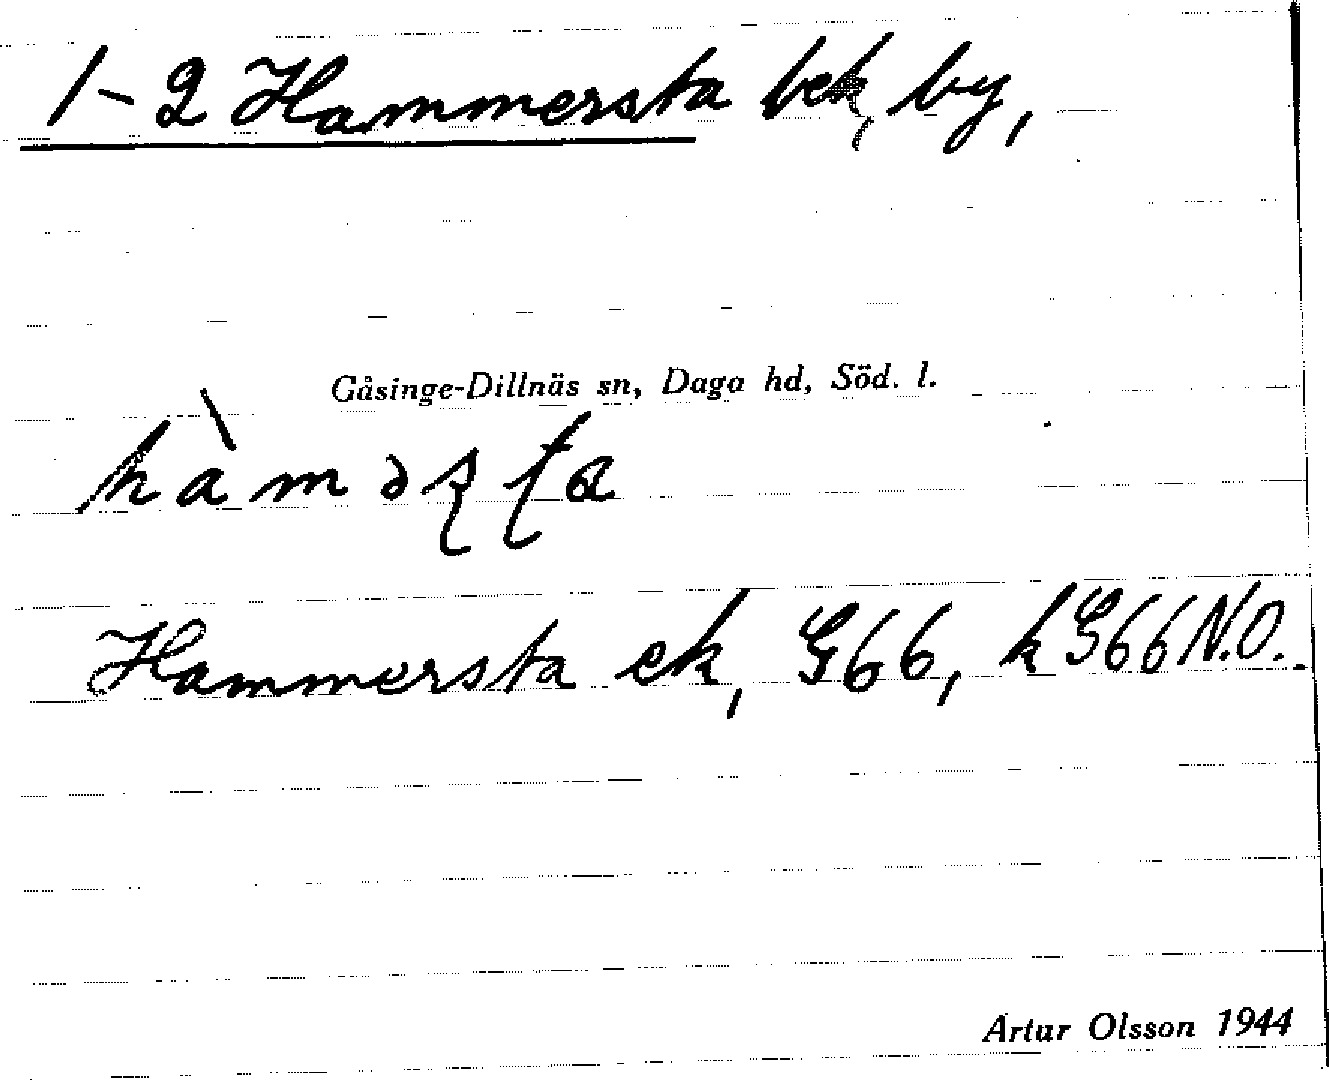 1-2 Hammersta bek, by,
Gåsinge-Dillnäs sn, Daga hd, Söd. l.
Hammersta ek, G66, k G66 N.O.
Artur Olsson 1944